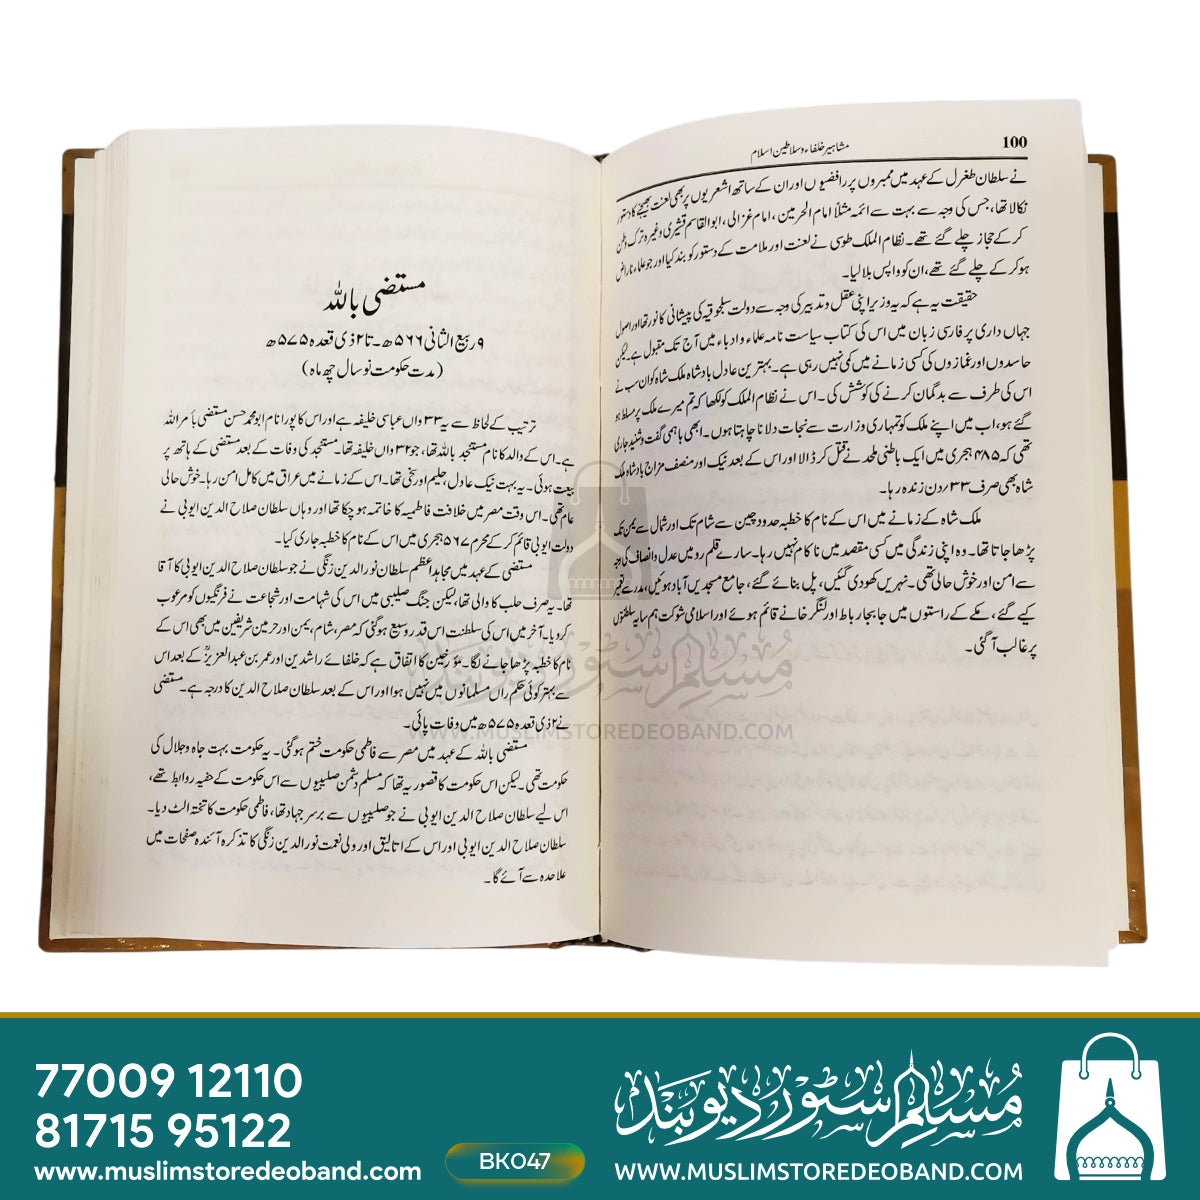 100
مشاہیر خلفاء و سلاطین اسلام
نے سلطان طغرل کے عہد میں ممبروں پر رافضیوں اور ان کے ساتھ اشعریوں پر بھی لعنت بھیجنے کا دستور
نکالا تھا، جس کی وجہ سے بہت سے ائمہ مثلاً امام الحرمین، امام غزالی، ابوالقاسم قشیری وغیرہ ترک وطن
کر کے حجاز چلے گئے تھے۔ نظام الملک طوسی نے لعنت اور ملامت کے دستور کو بند کیا اور جو علماء ناراض
ہو کر کے چلے گئے تھے، ان کو واپس بلا لیا۔
حقیقت یہ ہے کہ یہ وزیر اپنی عقل و تدبیر کی وجہ سے دولت سلجوقیہ کی پیشانی کا نور تھا اور اصول
جہاں داری پر فارسی زبان میں اس کی کتاب سیاست نامہ علماء و ادباء میں آج تک مقبول ہے۔ لیکن
حاسدوں اور غمازوں کی کسی زمانے میں کمی نہیں رہی ہے۔ بہترین عادل بادشاہ ملک شاہ کو ان سب نے
اس کی طرف سے بدگمان کرنے کی کوشش کی۔ اس نے نظام الملک کو لکھا کہ تم میرے ملک پر مسلط ہو
گئے ہو، اب میں اپنے ملک کو تمہاری وزارت سے نجات دلانا چاہتا ہوں۔ ابھی باہمی گفت و شنید جاری
تھی کہ ۴۸۵ ہجری میں ایک باطنی ملحد نے قتل کر ڈالا اور اس کے بعد نیک اور منصف مزاج بادشاہ ملک
شاہ بھی صرف ۳۳ دن زندہ رہا۔
ملک شاہ کے زمانے میں اس کے نام کا خطبہ حدود چین سے شام تک اور شمال سے یمن تک
پڑھا جاتا تھا۔ وہ اپنی زندگی میں کسی مقصد میں ناکام نہیں رہا۔ سارے قلم رو میں عدل و انصاف کی وجہ
سے امن اور خوش حالی تھی۔ نہریں کھودی گئیں، پل بنائے گئے، جامع مسجدیں آباد ہوئیں، مدرسے تعمیر
کیے گئے، مکے کے راستوں میں جا بجا رباط اور لنگر خانے قائم ہوئے اور اسلامی شوکت ہم سایہ سلطنتوں
پر غالب آ گئی۔
مستضی باللہ
۹ ربیع الثانی ۵۶۶ھ۔ تا ۲ ذی قعدہ ۵۷۵ھ
(مدت حکومت نو سال چھ ماہ)
ترتیب کے لحاظ سے یہ ۳۳ واں عباسی خلیفہ ہے اور اس کا پورا نام ابو محمد حسن مستضی بامر اللہ
ہے۔ اس کے والد کا نام مستنجد باللہ تھا، جو ۳۲ واں خلیفہ تھا۔ مستنجد کی وفات کے بعد مستضی کے ہاتھ پر
بیعت ہوئی۔ یہ بہت نیک عادل، حلیم اور سخی تھا۔ اس کے زمانے میں عراق میں کامل امن رہا۔ خوش حالی
عام تھی۔ اس وقت مصر میں خلافت فاطمیہ کا خاتمہ ہو چکا تھا اور وہاں سلطان صلاح الدین ایوبی نے
دولت ایوبی قائم کر کے محرم ۵۶۷ ہجری میں اس کے نام کا خطبہ جاری کیا۔
مستضی کے عہد میں مجاہد اعظم سلطان نور الدین زنگی نے جو سلطان صلاح الدین ایوبی کا آقا
تھا۔ یہ صرف حلب کا والی تھا، لیکن جنگ صلیبی میں اس کی شہامت اور شجاعت نے فرنگیوں کو مرعوب
کر دیا۔ آخر میں اس کی سلطنت اس قدر وسیع ہو گئی کہ مصر، شام، یمن اور حرمین شریفین میں بھی اس کے
نام کا خطبہ پڑھا جانے لگا۔ مؤرخین کا اتفاق ہے کہ خلفائے راشدین اور عمر بن عبدالعزیزؒ کے بعد اس
سے بہتر کوئی حکم راں مسلمانوں میں نہیں ہوا اور اس کے بعد سلطان صلاح الدین کا درجہ ہے۔ مستضی
نے ۲ ذی قعدہ ۵۷۵ھ میں وفات پائی۔
مستضی باللہ کے عہد میں مصر سے فاطمی حکومت ختم ہو گئی۔ یہ حکومت بہت جاہ و جلال کی
حکومت تھی۔ لیکن اس حکومت کا قصور یہ تھا کہ مسلم دشمن صلیبیوں سے اس حکومت کے خفیہ روابط تھے،
اس لیے سلطان صلاح الدین ایوبی نے جو صلیبیوں سے برسر جہاد تھا، فاطمی حکومت کا تختہ الٹ دیا۔
سلطان صلاح الدین ایوبی اور اس کے اتالیق اور ولی نعمت نور الدین زنگی کا تذکرہ آئندہ صفحات میں
علاحدہ سے آئے گا۔
مسلم سٹور دیوبند
WWW.MUSLIMSTOREDEOBAND.COM
77009 12110
81715 95122
www.muslimstoredeoband.com
BK047
مسلم سٹور دیوبند
WWW.MUSLIMSTOREDEOBAND.COM